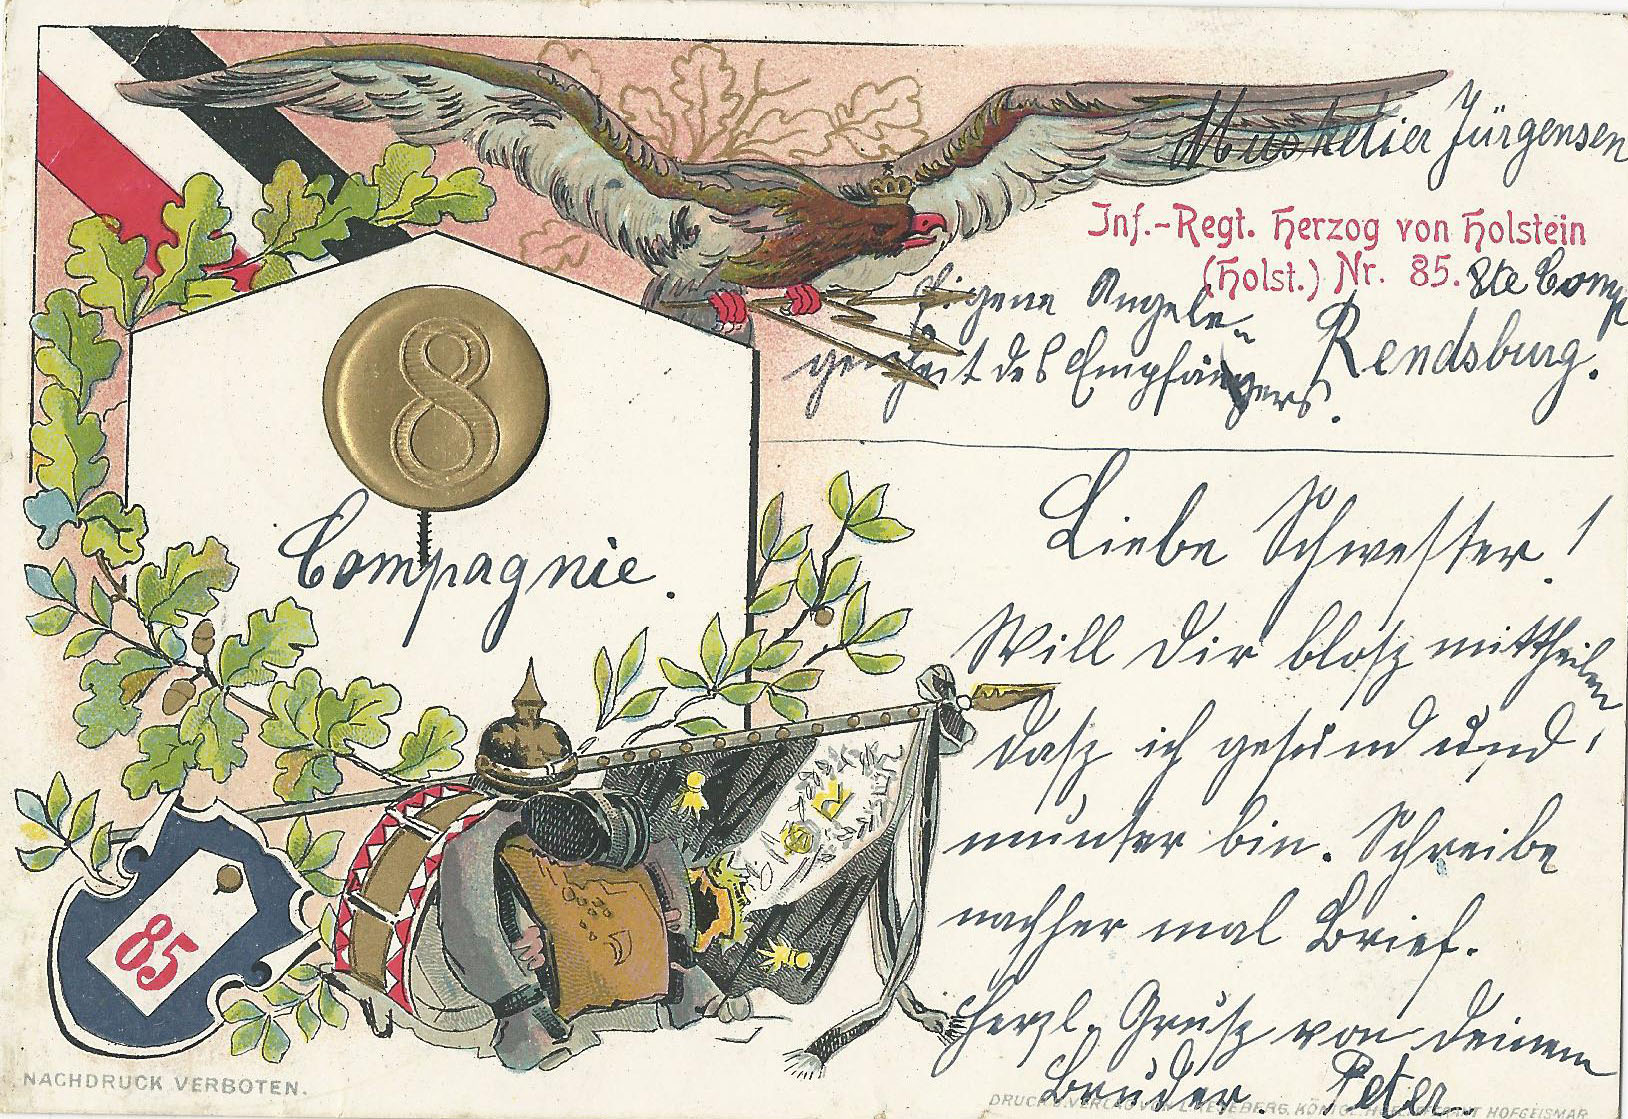 Musketier Jürgensen
Inf.-Regt. Herzog von Holstein
(Holst.) Nr. 85. 8te Comp
Eigene Angele-
genheit des Empfängers.
Rendsburg.
8
Compagnie.
Liebe Schwester!
Will Dir blosz mittheilen
dasz ich gesund und
munter bin. Schreibe
nachher mal Brief.
Herzl. Grusz von Deinem
Bruder. Peter.
85
NACHDRUCK VERBOTEN.
DRUCK U. VERLAG VON L. KESEBERG, KÖNIGL. HOFLIEFERANT HOFGEISMAR